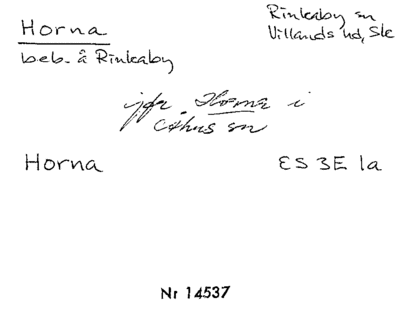 Horna
Rinkaby sn
Villands hd, Sk
beb. å Rinkaby
jfr. Horna i
Åhus sn
Horna
ES 3E 1a
Nr 14537